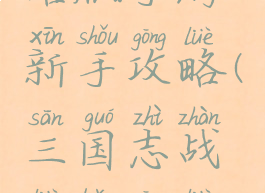 xīn shǒu gōng lüè
新手攻略(
sān guó zhì zhàn
三国志战